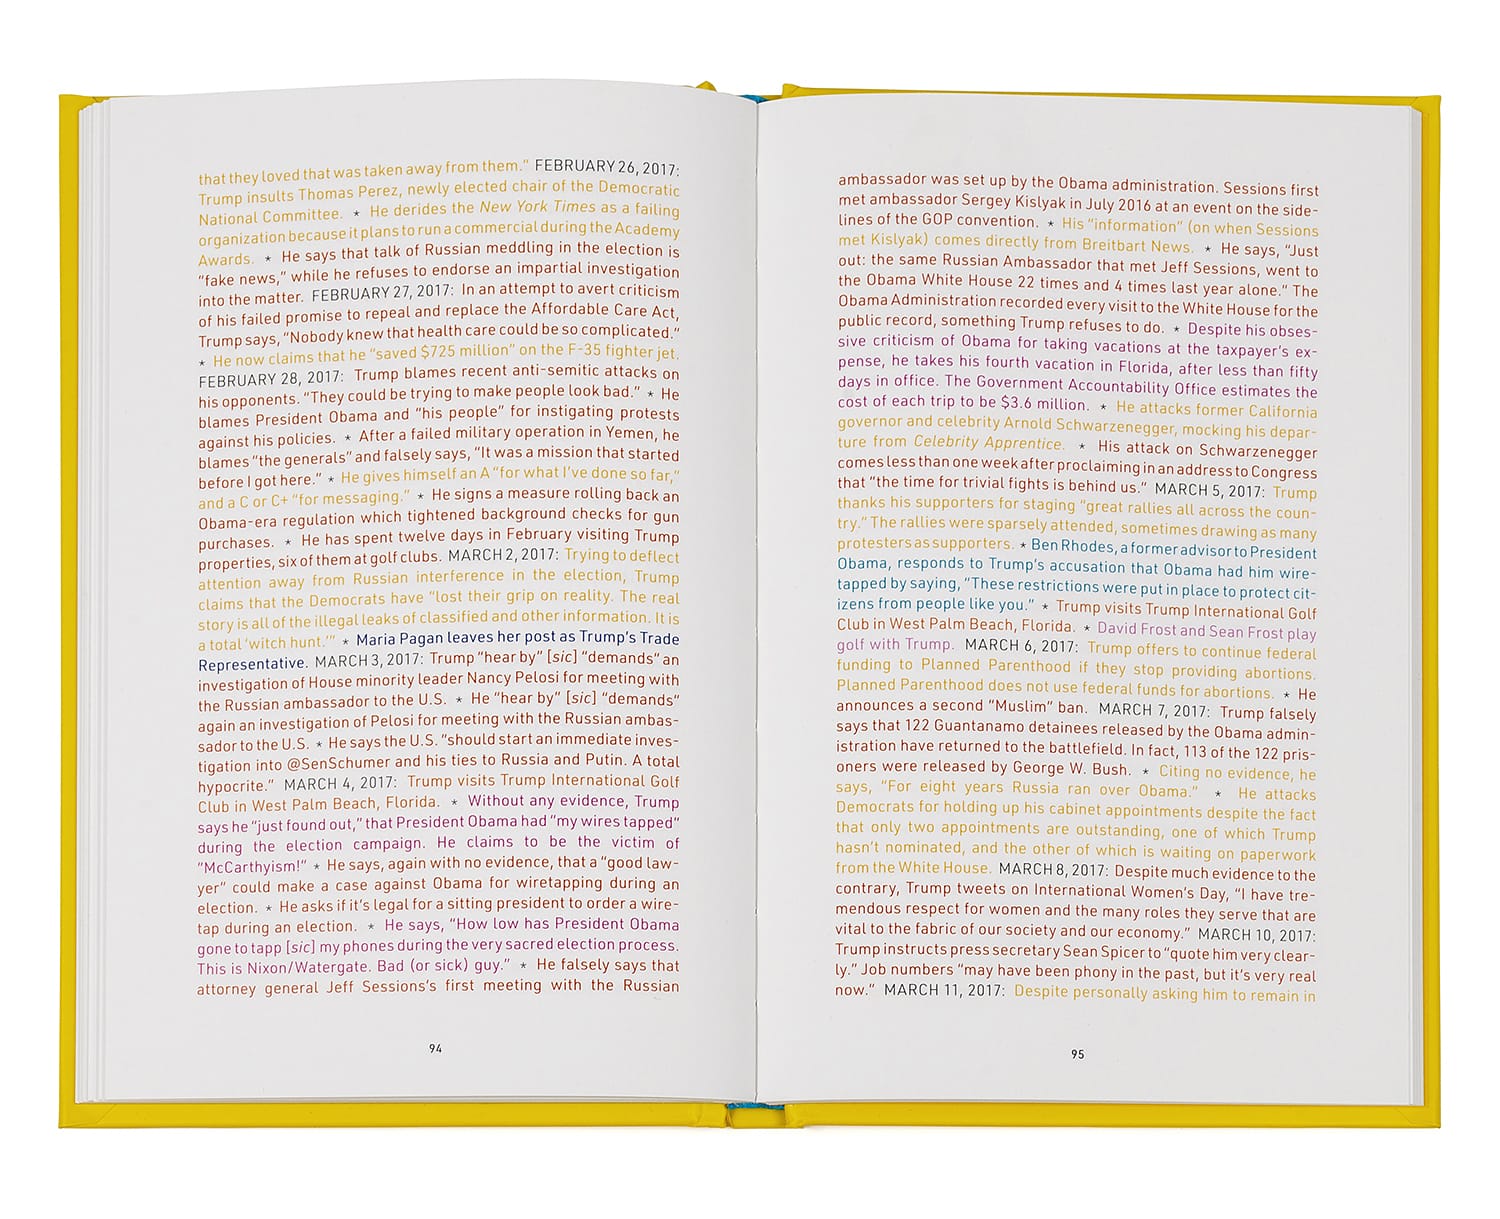 that they loved that was taken away from them." FEBRUARY 26, 2017:
Trump insults Thomas Perez, newly elected chair of the Democratic
National Committee. * He derides the New York Times as a failing
organization because it plans to run a commercial during the Academy
Awards. * He says that talk of Russian meddling in the election is
"fake news," while he refuses to endorse an impartial investigation
into the matter. FEBRUARY 27, 2017: In an attempt to avert criticism
of his failed promise to repeal and replace the Affordable Care Act,
Trump says, "Nobody knew that health care could be so complicated."
* He now claims that he "saved $725 million" on the F-35 fighter jet.
FEBRUARY 28, 2017: Trump blames recent anti-semitic attacks on
his opponents. "They could be trying to make people look bad." * He
blames President Obama and "his people" for instigating protests
against his policies. * After a failed military operation in Yemen, he
blames "the generals" and falsely says, "It was a mission that started
before I got here." * He gives himself an A "for what I've done so far,"
and a C or C+ "for messaging." * He signs a measure rolling back an
Obama-era regulation which tightened background checks for gun
purchases. * He has spent twelve days in February visiting Trump
properties, six of them at golf clubs. MARCH 2, 2017: Trying to deflect
attention away from Russian interference in the election, Trump
claims that the Democrats have "lost their grip on reality. The real
story is all of the illegal leaks of classified and other information. It is
a total 'witch hunt.'" * Maria Pagan leaves her post as Trump's Trade
Representative. MARCH 3, 2017: Trump "hear by" [sic] "demands" an
investigation of House minority leader Nancy Pelosi for meeting with
the Russian ambassador to the U.S. * He "hear by" [sic] "demands"
again an investigation of Pelosi for meeting with the Russian ambas-
sador to the U.S. * He says the U.S. "should start an immediate inves-
tigation into @SenSchumer and his ties to Russia and Putin. A total
hypocrite." MARCH 4, 2017: Trump visits Trump International Golf
Club in West Palm Beach, Florida. * Without any evidence, Trump
says he "just found out," that President Obama had "my wires tapped"
during the election campaign. He claims to be the victim of
"McCarthyism!" * He says, again with no evidence, that a "good law-
yer" could make a case against Obama for wiretapping during an
election. * He asks if it's legal for a sitting president to order a wire-
tap during an election. * He says, "How low has President Obama
gone to tapp [sic] my phones during the very sacred election process.
This is Nixon/Watergate. Bad (or sick) guy." * He falsely says that
attorney general Jeff Sessions's first meeting with the Russian
94
ambassador was set up by the Obama administration. Sessions first
met ambassador Sergey Kislyak in July 2016 at an event on the side-
lines of the GOP convention. * His "information" (on when Sessions
met Kislyak) comes directly from Breitbart News. * He says, "Just
out: the same Russian Ambassador that met Jeff Sessions, went to
the Obama White House 22 times and 4 times last year alone." The
Obama Administration recorded every visit to the White House for the
public record, something Trump refuses to do. * Despite his obses-
sive criticism of Obama for taking vacations at the taxpayer's ex-
pense, he takes his fourth vacation in Florida, after less than fifty
days in office. The Government Accountability Office estimates the
cost of each trip to be $3.6 million. * He attacks former California
governor and celebrity Arnold Schwarzenegger, mocking his depar-
ture from Celebrity Apprentice. * His attack on Schwarzenegger
comes less than one week after proclaiming in an address to Congress
that "the time for trivial fights is behind us." MARCH 5, 2017: Trump
thanks his supporters for staging "great rallies all across the coun-
try." The rallies were sparsely attended, sometimes drawing as many
protesters as supporters. * Ben Rhodes, a former advisor to President
Obama, responds to Trump's accusation that Obama had him wire-
tapped by saying, "These restrictions were put in place to protect cit-
izens from people like you." * Trump visits Trump International Golf
Club in West Palm Beach, Florida. * David Frost and Sean Frost play
golf with Trump. MARCH 6, 2017: Trump offers to continue federal
funding to Planned Parenthood if they stop providing abortions.
Planned Parenthood does not use federal funds for abortions. * He
announces a second "Muslim" ban. MARCH 7, 2017: Trump falsely
says that 122 Guantanamo detainees released by the Obama admin-
istration have returned to the battlefield. In fact, 113 of the 122 pris-
oners were released by George W. Bush. * Citing no evidence, he
says, "For eight years Russia ran over Obama." * He attacks
Democrats for holding up his cabinet appointments despite the fact
that only two appointments are outstanding, one of which Trump
hasn't nominated, and the other of which is waiting on paperwork
from the White House. MARCH 8, 2017: Despite much evidence to the
contrary, Trump tweets on International Women's Day, "I have tre-
mendous respect for women and the many roles they serve that are
vital to the fabric of our society and our economy." MARCH 10, 2017:
Trump instructs press secretary Sean Spicer to "quote him very clear-
ly." Job numbers "may have been phony in the past, but it's very real
now." MARCH 11, 2017: Despite personally asking him to remain in
95